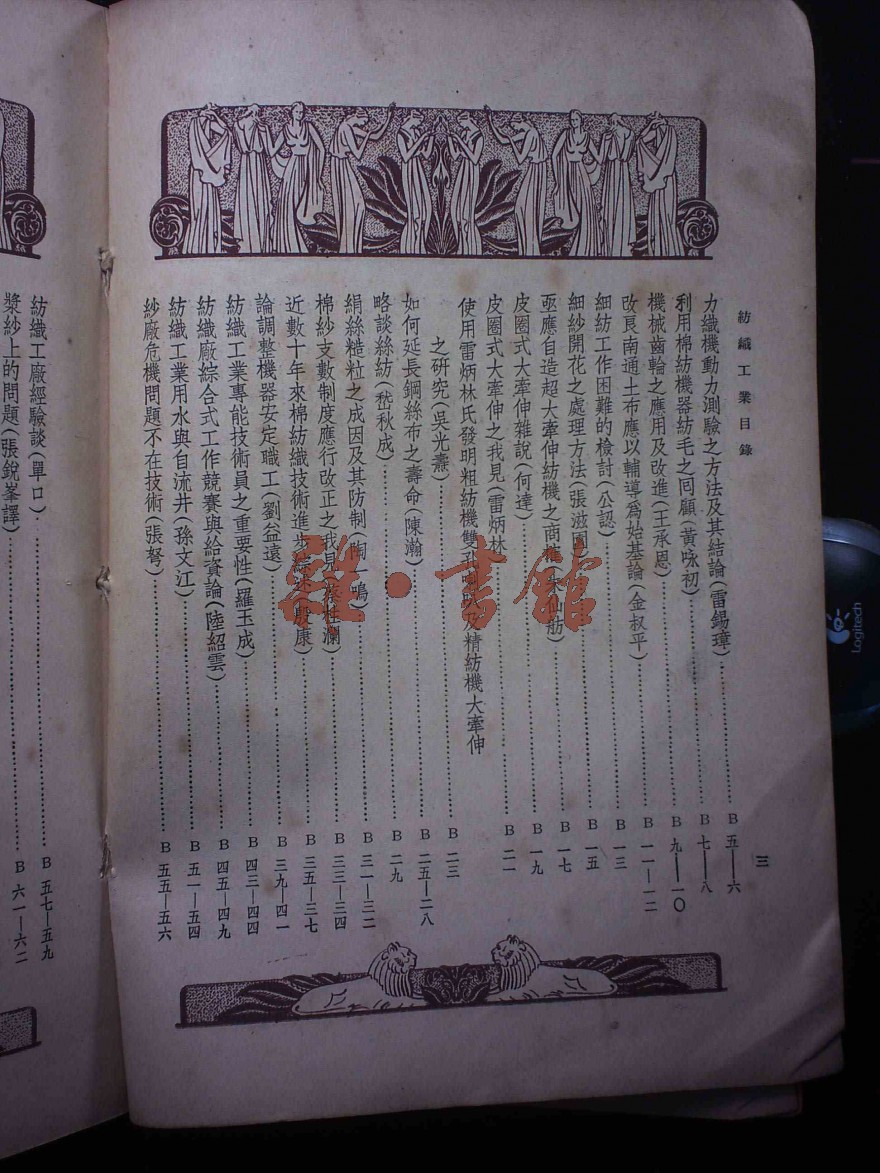 紡織工業目錄
三
力織機動力測驗之方法及其結論(雷錫璋)…B五—六
利用棉紡機器紡毛之回顧(黃咏初)…B七—八
機械齒輪之應用及改進(王承恩)…B九—一〇
改良南通土布應以輔導爲始基論(金叔平)…B一一—一二
細紡工作困難的檢討(公認)…B一三
細紗開花之處理方法(張滋園)…B一五
亟應自造超大牽伸紡機之商榷…B一七
皮圈式大牽伸雜說(何達)…B一九
皮圈式大牽伸之我見(雷炳林)…B二一
使用雷炳林氏發明粗紡機雙孔喇叭及精紡機大牽伸
之研究(吳光燾)…B二三
如何延長鋼絲布之壽命(陳瀚)…B二五—二八
略談絲紡(嵇秋成)…B二九
絹絲糙粒之成因及其防制(陶一鳴)…B三一—三二
棉紗支數制度應行改正之我見…B三三—三四
近數十年來棉紡織技術進步…B三五—三七
論調整機器安定職工(劉益遠)…B三九—四一
紡織工業專能技術員之重要性(羅玉成)…B四三—四四
紡織廠綜合式工作競賽與給資論(陸紹雲)…B四五—四九
紡織工業用水與自流井(孫文江)…B五一—五四
紗廠危機問題不在技術(張弩)…B五五—五六
紡織工廠經驗談(單口)…B五七—五九
漿紗上的問題(張銳峯譯)…B六一—六二
雜·書館
Logitech